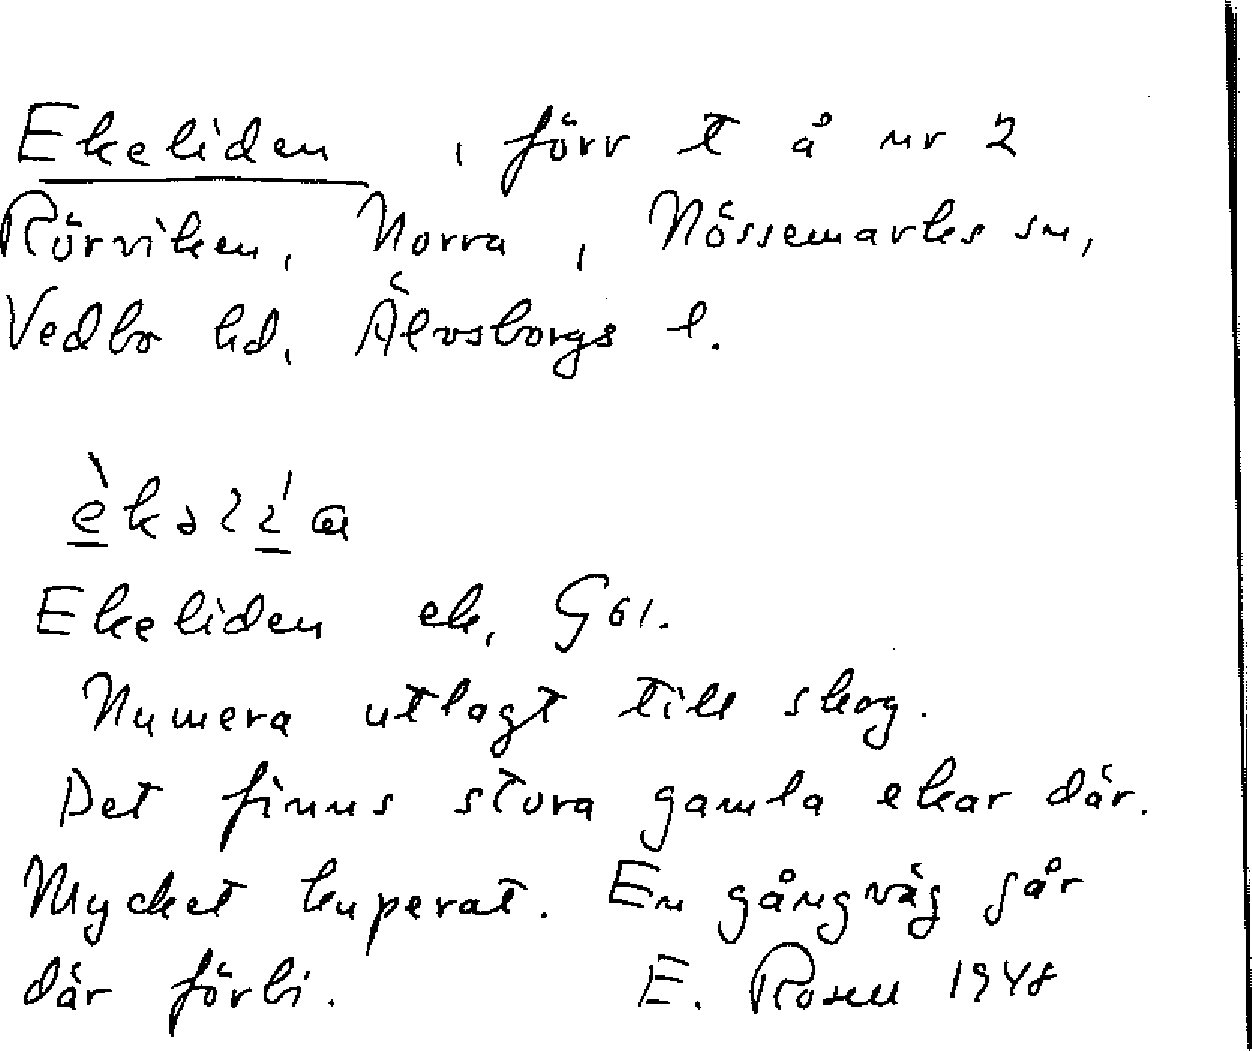 Ekeliden, förr t å nr 2
Rörviken, Norra, Nössemarks sn,
Vedbo hd, Älvsborgs l.
Ekeliden ek, G61.
Numera utlagt till skog.
Det finns stora gamla ekar där.
Mycket kuperat. En gångväg går
där förbi. E. Rosell 1948